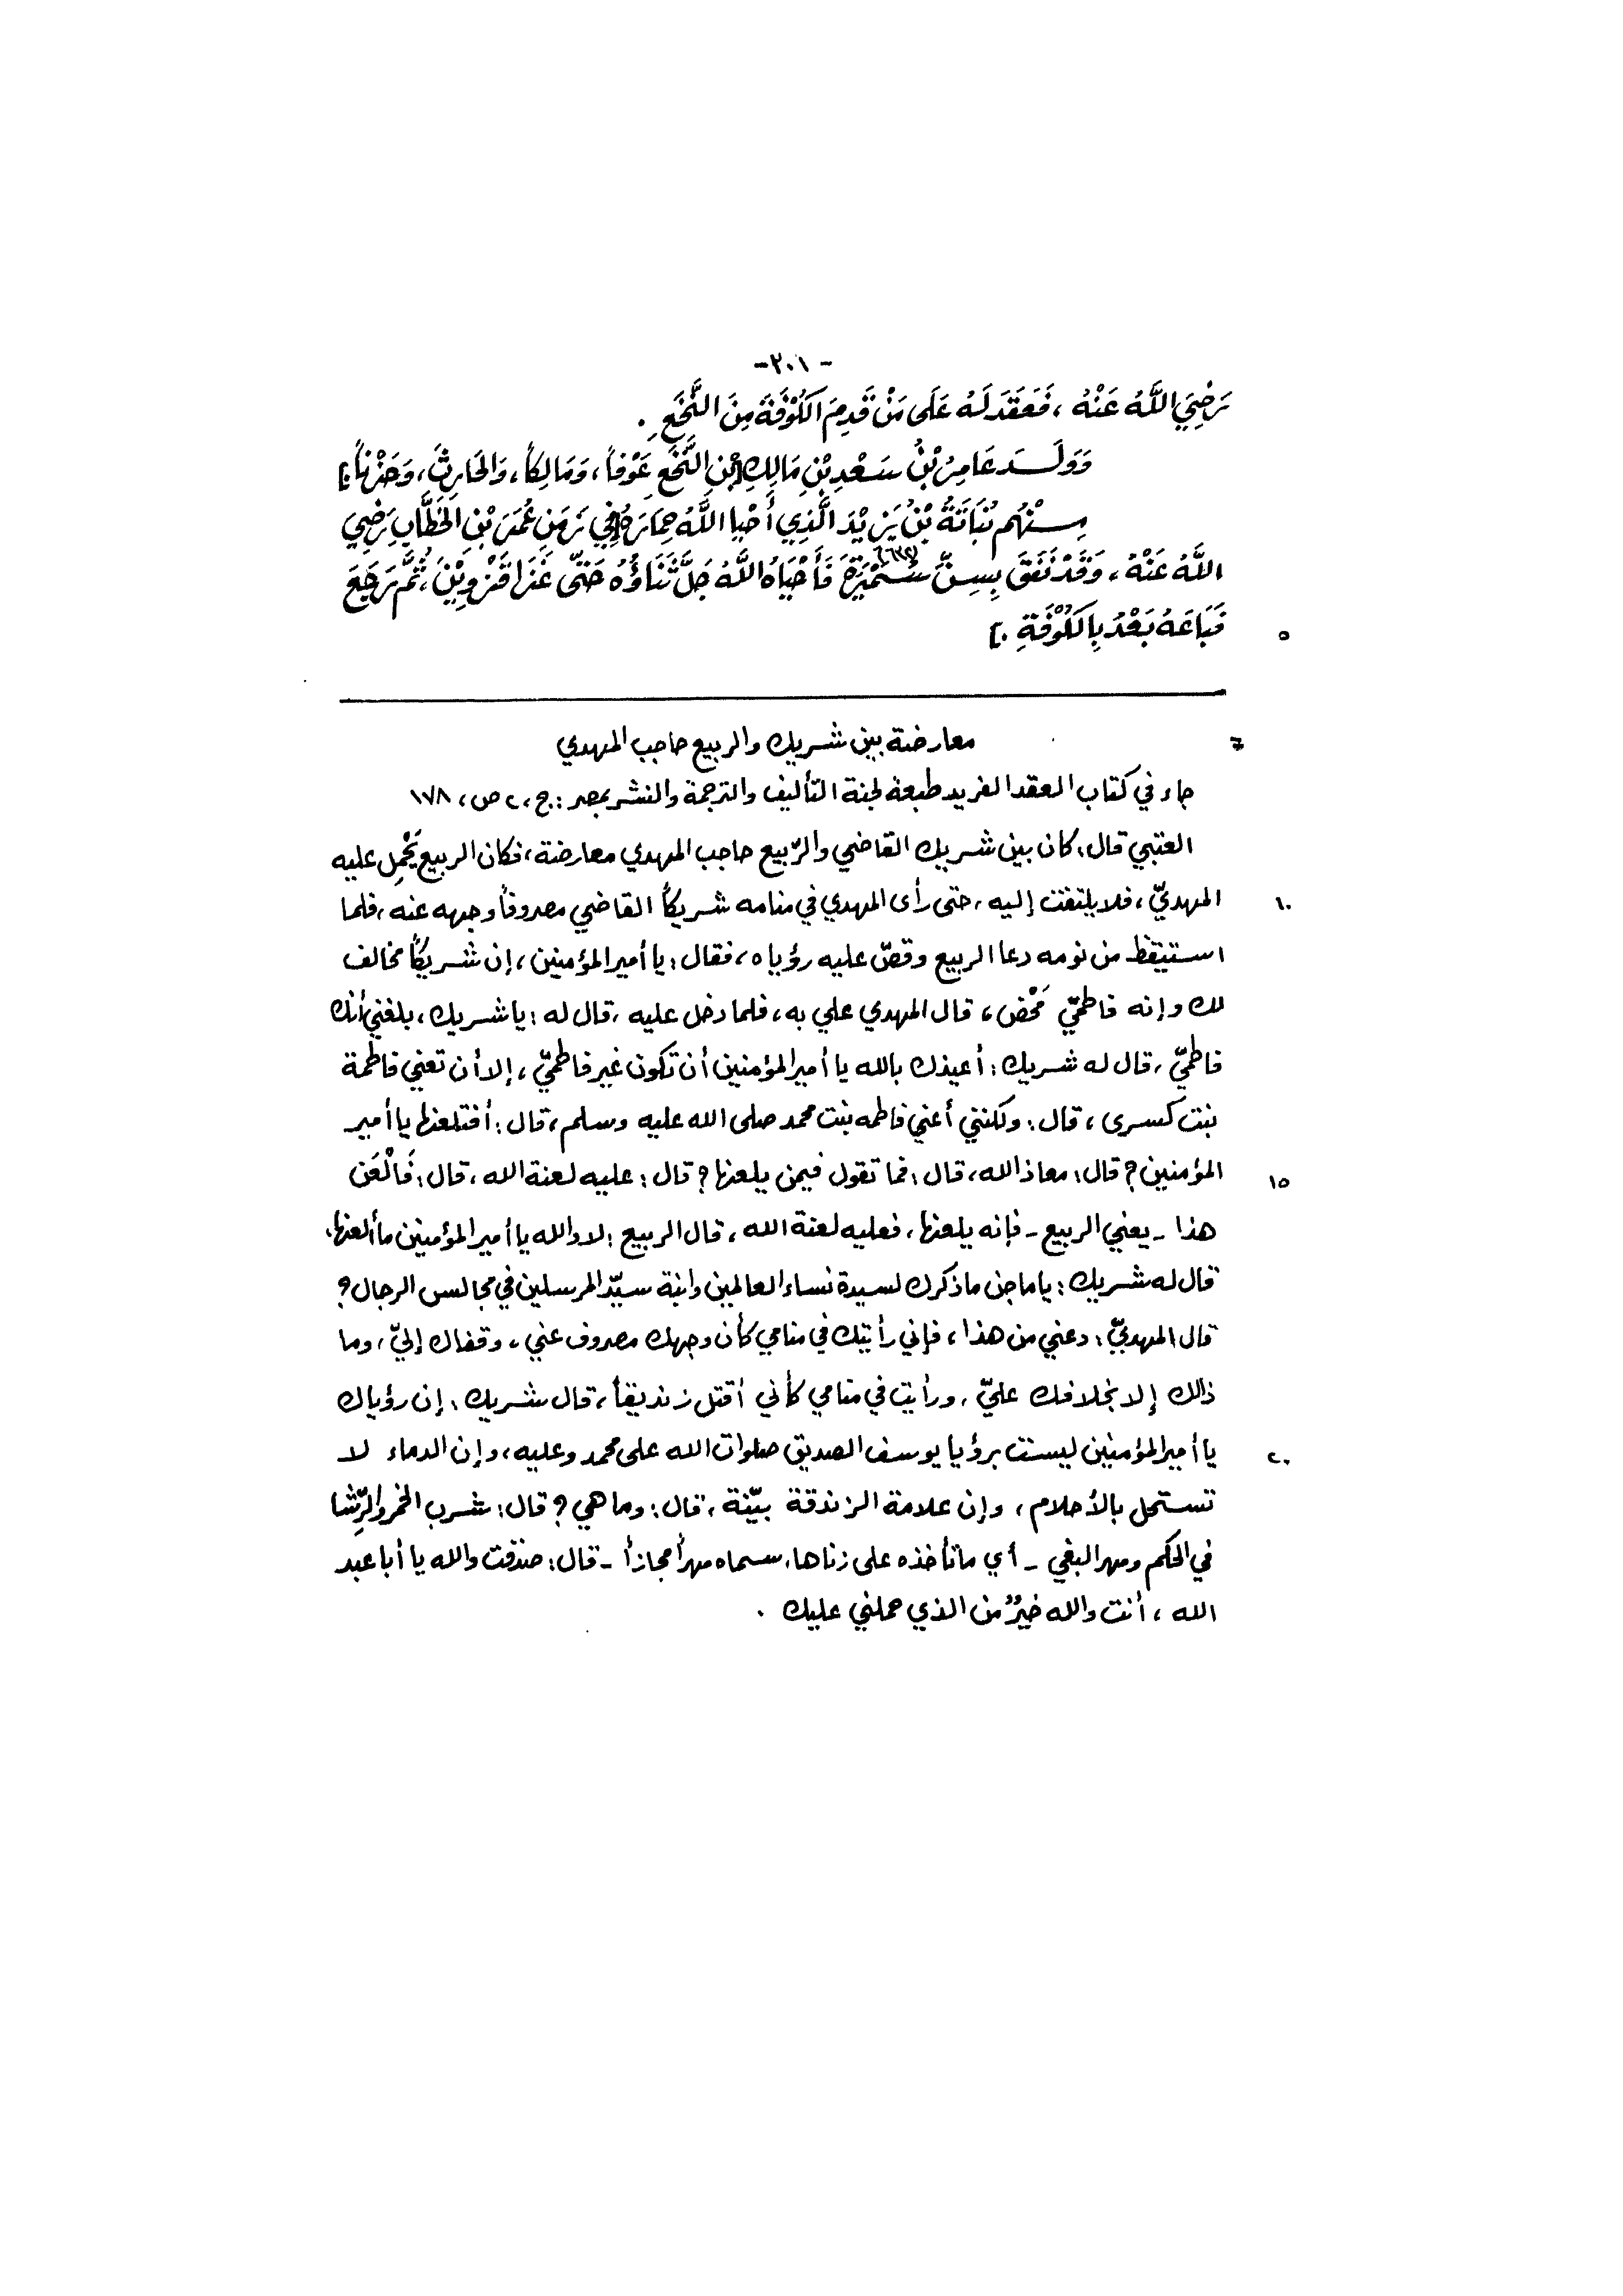 -٢٠١-
رَضِيَ اللَّهُ عَنْهُ ، فَعَقَدَ لَهُ عَلَى مَنْ قَدِمَ الكُوْفَةَ مِنَ النَّخَعِ .
وَوَلَدَ عَامِرُ بْنُ سَعْدِ بْنِ مَالِكِ [بْنِ النَّخَعِ عَوْفاً، وَمَالِكاً، وَالحَارِثَ، وَحَزْناً]
مِنْهُم نُبَاتَةُ بْنُ يَزِيْدَ الَّذِي أَحْيا اللَّهُ حِمَارَهُ [فِي زَمَنِ عُمَرَ بْنِ الخَطَّابِ رَضِيَ
اللَّهُ عَنْهُ، وَقَدْ نَفَقَ بِسِنِّ سُمَيْرَةَ فَأَحْيَاهُ اللَّهُ جَلَّ ثَنَاؤُهُ حَتَّى غَزَا قَزْوِيْنَ، ثُمَّ رَجَعَ
فَبَاعَهُ بَعْدُ بِالكُوْفَةِ .]
٥
معارضة بين شريك والربيع حاجب المهدي
جاء في كتاب العقد الفريد طبعة لجنة التأليف والترجمة والنشر بمصر : ج، ٢ ص، ١٧٨
العتبي قال: كان بين شريك القاضي والرّبيع حاجب المهدي معارضة، فكان الربيع يَحْمِل عليه
المهديّ، فلا يلتفت إليه، حتى رأى المهدي في منامه شريكاً القاضي مصروفاً وجهه عنه، فلما
١٠
استيقظ من نومه دعا الربيع وقصّ عليه رؤياه، فقال: يا أمير المؤمنين، إن شريكاً مخالف
لك وإنه فاطميّ مَحْض، قال المهدي علي به، فلما دخل عليه، قال له : يا شريك، بلغني أنك
فاطميّ، قال له شريك: أعيذك بالله يا أمير المؤمنين أن تكون غير فاطميّ، إلا أن تعني فاطمة
بنت كسرى، قال: ولكنني أعني فاطمه بنت محمد صلى الله عليه وسلم، قال: أفتلعنها يا أمير
المؤمنين؟ قال: معاذ الله، قال: فما تقول فيمن يلعنها؟ قال: عليه لعنة الله، قال: فَالْعَن
١٥
هذا - يعني الربيع - فإنه يلعنها، فعليه لعنة الله، قال الربيع : لا والله يا أمير المؤمنين ما ألعنها،
قال له شريك : يا ماجن ما ذكرك لسيدة نساء العالمين وابنة سيّد المرسلين في مجالس الرجال؟
قال المهديّ: دعني من هذا، فإني رأيتك في منامي كأن وجهك مصروف عني، وقفاك إليّ، وما
ذلك إلا بخلافك عليّ، ورأيت في منامي كأني أقتل زنديقاً، قال شريك: إن رؤياك
يا أمير المؤمنين ليست برؤيا يوسف الصديق صلوات الله على محمد وعليه، وإن الدماء لا
٢٠
تستحل بالأحلام، وإن علامة الزندقة بيّنة، قال: وما هي؟ قال: شرب الخمر والرِّشا
في الحكم ومهر البغي - أي ما تأخذه على زناها، سماه مهراً مجازاً - قال: صدقت والله يا أبا عبد
الله، أنت والله خيرٌ من الذي حملني عليك .